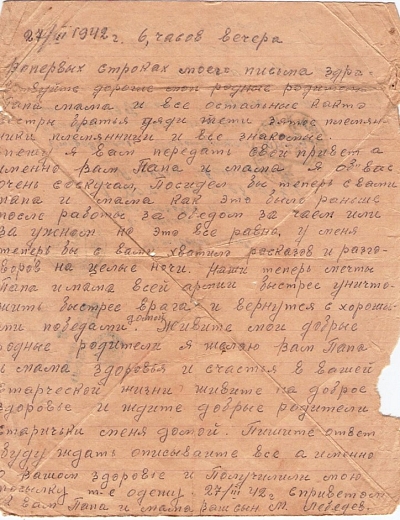 27/III 1942 г. 6, часов вечера
Вопервых строках моего письма здра-
вствуйте дорогие мои родные родители
папа мама и все остальные както
сестры братья дяди тети зятья племян-
ники племянници и все знакомые.
спешу я вам передать свой привет а
именно вам Папа и мама я о вас
очень соскучал, Посидел бы теперь с вами
папа и мама как это было раньше
после работы за обедом за чаем или
за ужном но это все равно, у меня
теперь бы с вами хватило расказов и разго-
воров на целые ночи. Наши теперь мечты
Папа и мама всей армии быстрее уничто-
жить быстрее врага и вернутся с хороши-
ми победами домой. Живите мои добрые
родные родители я желаю вам Папа
и мама здоровья и счастья в вашей
старческой жизни живите на доброе
здоровье и ждите добрые родители
старички меня домой. Пишите ответ
буду ждать описывайте все а именно
о вашом здоровье и Получили ли мою
посылку т-е одежу. 27/III 42 г. с приветом
к вам Папа и мама ваш сын М. Лебедев.